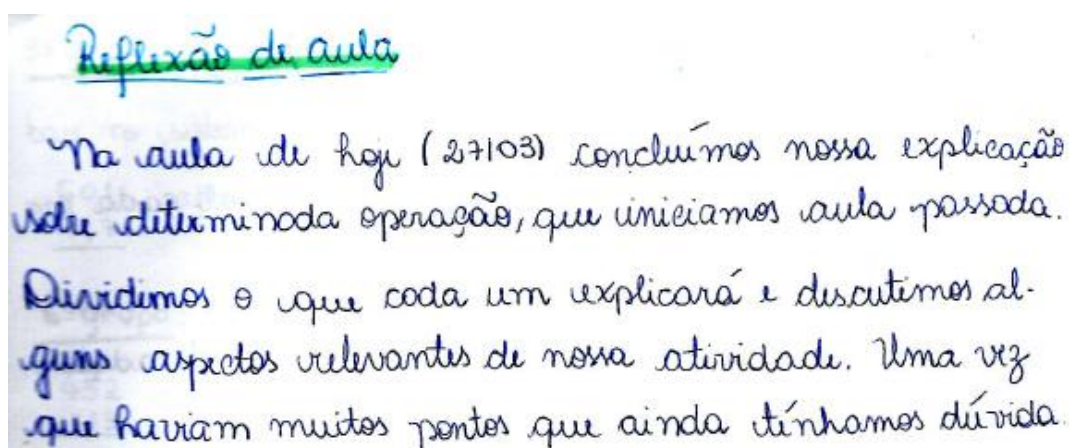 Reflexão de aula
Na aula de hoje (27/03) concluímos nossa explicação
sobre determinada operação, que iniciamos aula passada.
Dividimos o que cada um explicará e discutimos al-
guns aspectos relevantes de nossa atividade. Uma vez
que haviam muitos pontos que ainda tínhamos dúvida.